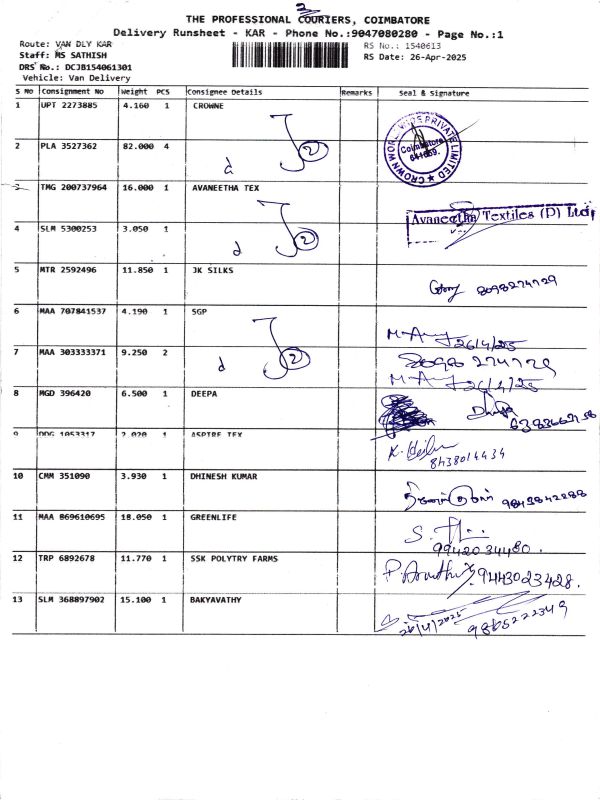 THE PROFESSIONAL COURIERS, COIMBATORE
Delivery Runsheet - KAR - Phone No.:9047080280 - Page No.:1
Route: VAN DLY KAR
RS No.: 1540613
Staff: MS SATHISH
RS Date: 26-Apr-2025
DRS No.: DCJB154061301
Vehicle: Van Delivery
S NO Consignment No Weight PCS Consignee Details Remarks Seal & Signature
1 UPT 2273885 4.160 1 CROWNE
CROWN WORLDWIDE PRIVATE LIMITED
Coimbatore
2 PLA 3527362 82.000 4
d 2
3 TMG 200737964 16.000 1 AVANEETHA TEX
Avaneetha Textiles (P) Ltd
4 SLM 5300253 3.050 1
d 2
5 MTR 2592496 11.850 1 JK SILKS
8098274729
6 MAA 707841537 4.190 1 SGP
26/4/25
7 MAA 303333371 9.250 2
d 2
8098 274729
26/4/25
8 MGD 396420 6.500 1 DEEPA
9 DDG 1053317 2.020 1 ASPIRE TEX
8438014434
10 CMM 351090 3.930 1 DHINESH KUMAR
9843842288
11 MAA 869610695 18.050 1 GREENLIFE
9942034480.
12 TRP 6892678 11.770 1 SSK POLYTRY FARMS
9443023428.
13 SLM 368897902 15.100 1 BAKYAVATHY
26/4/2025 9865222349